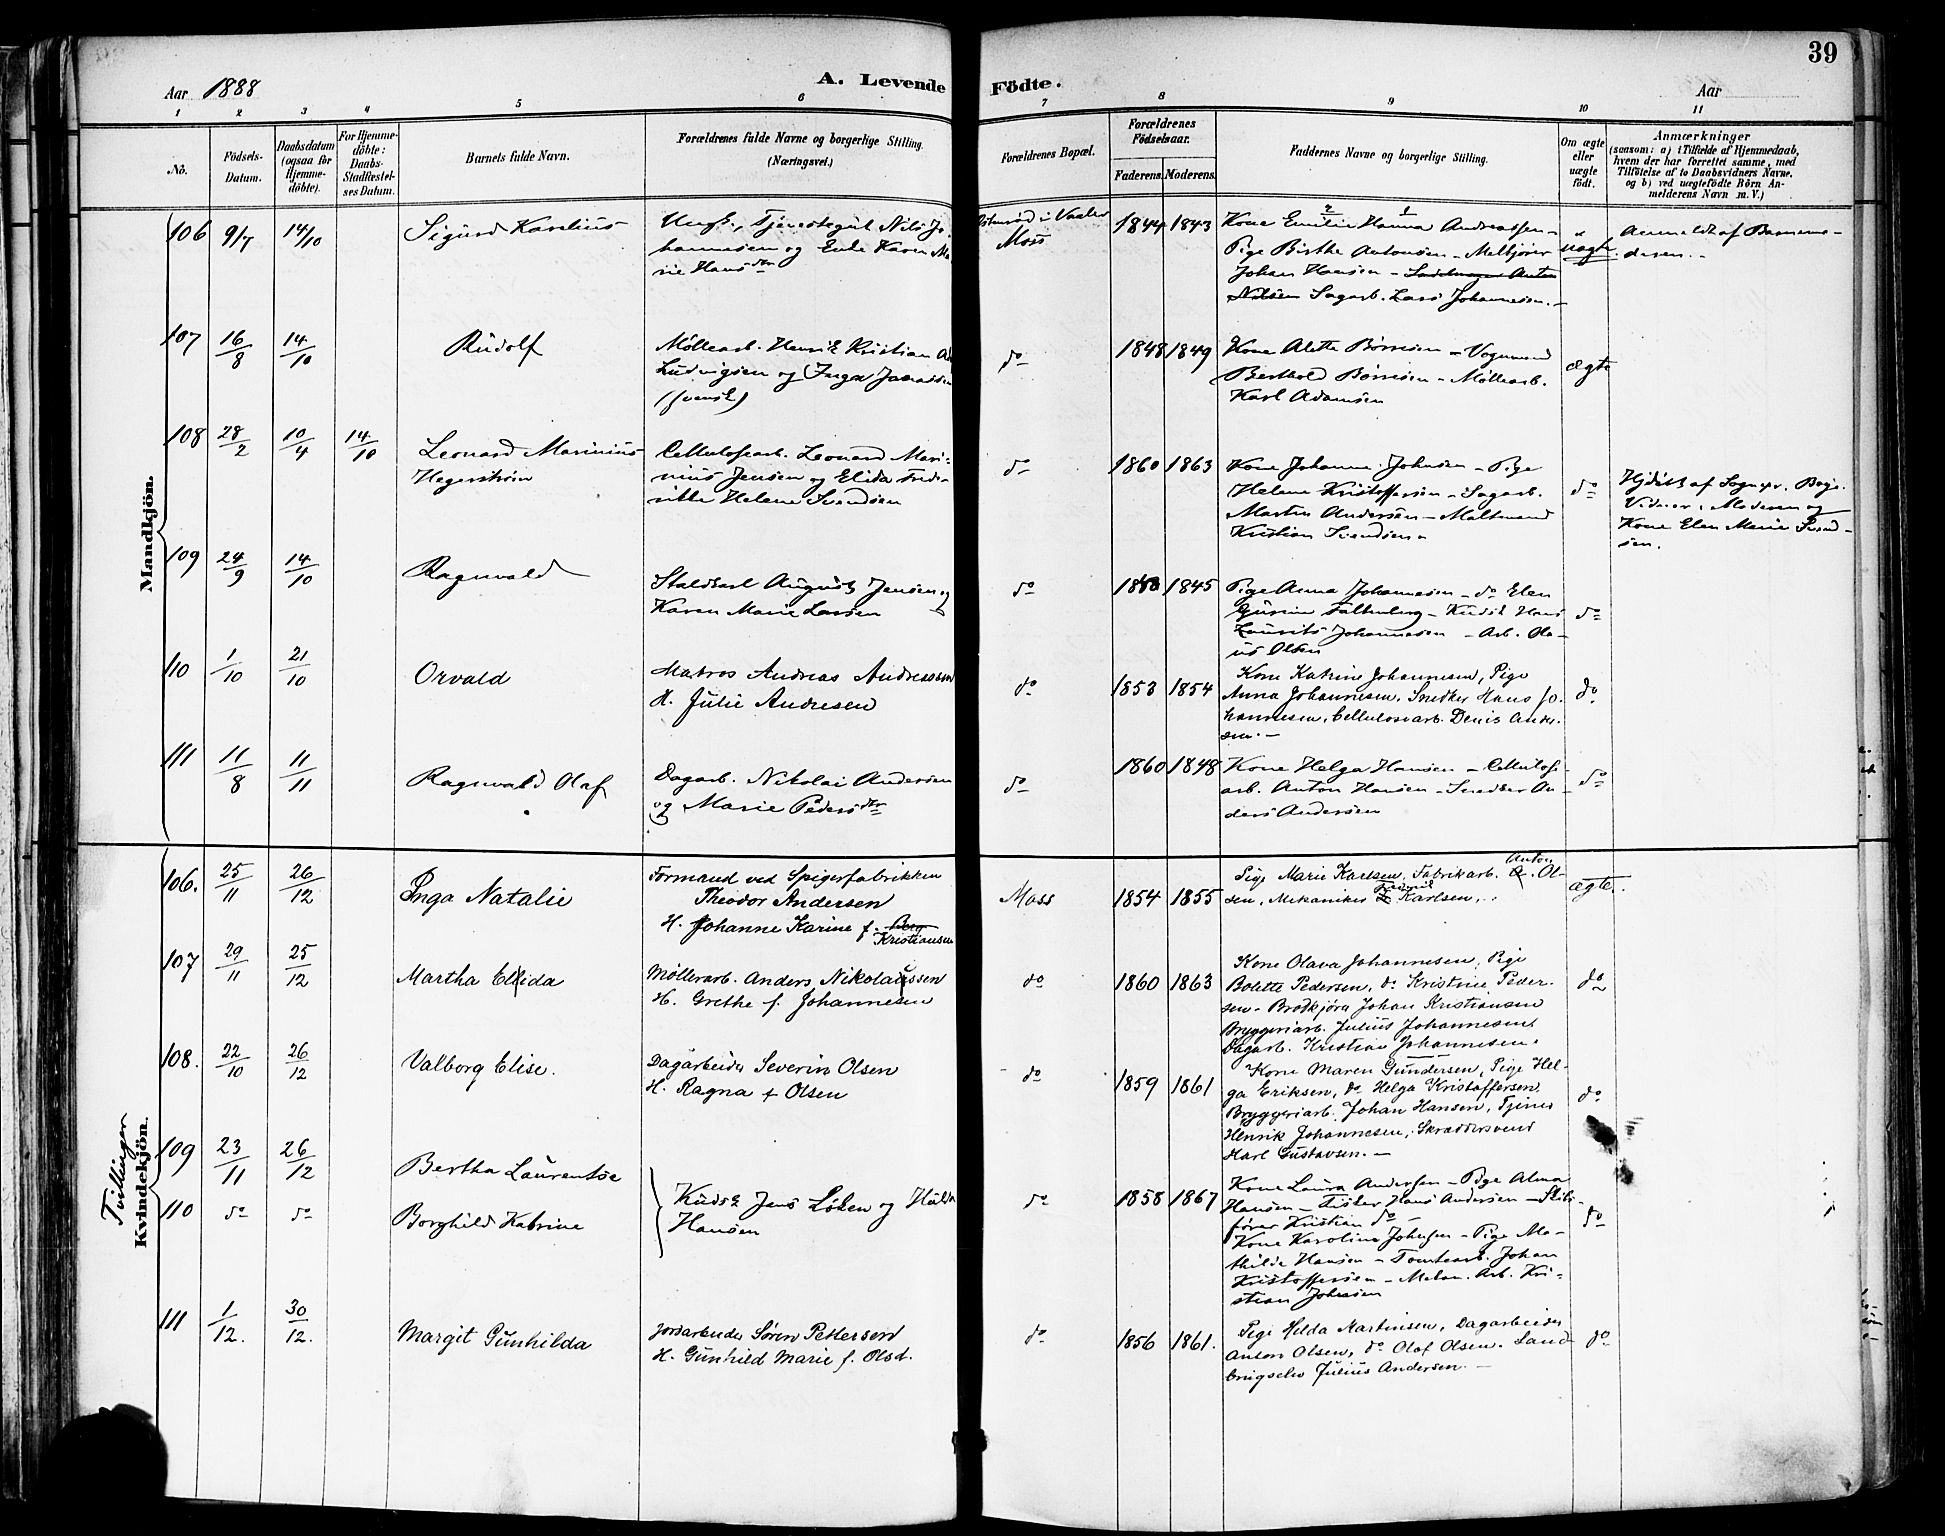 39
Aar 1888
A. Levende Födte.
Aar
1 2 3 4 5 6 7 8 9 10 11
No.
Födsels-Datum.
Daabsdatum (ogsaa for Hjemme-döbte).
For Hjemme-döbte: Daabs-Stadfæstel-ses Datum.
Barnets fulde Navn.
Forældrenes fulde Navne og borgerlige Stilling. (Næringsvei.)
Forældrenes Bopæl.
Forældrenes Födselsaar.
Faderens. Moderens.
Faddernes Navne og borgerlige Stilling.
Om ægte eller uægte födt.
Anmærkninger
(saasom: a) i Tilfælde af Hjemmedaab,
hvem der har forrettet samme, med
Tilföielse af to Daabsvidners Navne.
og b) ved uægtefödte Börn An-
melderens Navn m. V.)
Mandkjön.
106 9/7 14/10 Sigurd Karelius
Ungk., Tjenestegut Nils Jo-
hannesen og Enke Karen Ma-
rie Hansdtr
i Vaaler
Moss
1844 1843
Kone Emilie Hanna Andreassen -
Pige Birthe Antonsen - Melkjører
Johan Hansen -
Nilsen Sagarb. Lars Johannesen. -
uægte.
Anmeldt af Barnemo-
deren. -
107 16/8 14/10 Rudolf
Møllearb. Henrik Kristian
Ludvigsen og Inga
(svensk)
do
1848 1849
Kone Alette Børresen - Vognmand
Berthold Børresen - Møllearb.
Karl Adamsen
ægte
108 28/2 10/4 14/10
Leonard Marinius
Hegerstrøm
Cellulosearb. Leonard Mari-
nius Jensen og Elida Fred-
rikke Helene Svendsen
do
1860 1863
Kone Johanne Johnsen - Pige
Helene Kristoffersen - Sagarb.
Martin Andersen - Maltmand
Kristian Svendsen.
do
Hjdøbt af Sognepr.
Vidner: Moderen og
Kone Elen Marie Svend-
sen.
109 24/9 14/10 Ragnvald
Staldkarl August Jensen og
Karen Marie Larsen
do
1845
Pige Anna Johannesen - do Elen
Gurine Falkenberg - Kudsk Hans
Laurits Johannesen - Arb. Ola-
us Olsen
do
110 1/10 21/10 Orvald
Matros Andreas Andreassen
H. Julie Andresen
do
1853 1854
Kone Katrine Johannesen, Pige
Anna Johannesen, Snedker Hans Jo-
hannesen, Cellulosearb. Denis Ander-
sen. -
do
111 11/8 11/11 Ragnvald Olaf
Dagarb. Nikolai Andersen
og Marie Pedersdtr
do
1860 1848
Kone Helga Hansen - Cellulose-
arb. Anton Hansen - Snedker An-
ders Andersen
do
Kvindekjön.
Tvillinger
106. 25/11 26/12 Inga Natalie
Formand ved Spigerfabrikken
Theodor Andersen
H. Johanne Karine f. Berg
Kristiansen
Moss
1854 1855
Anton
Pige Marie Karlsen, Fabrikarb. A. Ol-
sen, Mekaniker Karlsen,
ægte.
107 29/11 25/12 Martha Elida
Møllerarb. Anders Nikolaissen
H. Grethe f. Johannesen
do
1860 1863
Kone Olava Johannesen, Pige
Bolette Pedersen, do Kristine Peder-
sen - Brødkjører Johan Kristiansen
Bryggeriarb. Julius Johannesen
Dagarb. Kristian Johannesen.
do
108. 22/10 26/12 Valborg Elise.
Dagarbeider Severin Olsen
H. Ragna f Olsen
do
1859 1861
Kone Maren Gundersen, Pige Hel-
ga Eriksen, do Helga Kristoffersen
Bryggeriarb. Johan Hansen, Tjener
Henrik Johannesen, Skræddersvend
Karl Gustavsen. -
do
109 23/11 26/12 Bertha Laurentse
110 do do Borghild Katrine
Kudsk Jens Løken og Hulda
Hansen
do
1858 1867
Kone Laura Andersen - Pige Alma
Hansen - Fisker Hans Andersen - Skibs-
fører Kristian do -
Kone Karoline Johnsen - Pige Ma-
thilde Hansen - Tomtearb. Johan
Kristoffersen - Arb. Kri-
stian Johnsen
do
111 1/12. 30/12. Margit Gunhilda
Jordarbeider Søren Pettersen
H. Gunhild Marie f. Olsd.
do
1856 1861.
Pige Hilda Martinsen, Dagarbeider
Anton Olsen, do Olaf Olsen. Land-
brugselev Julius Andersen. -
do